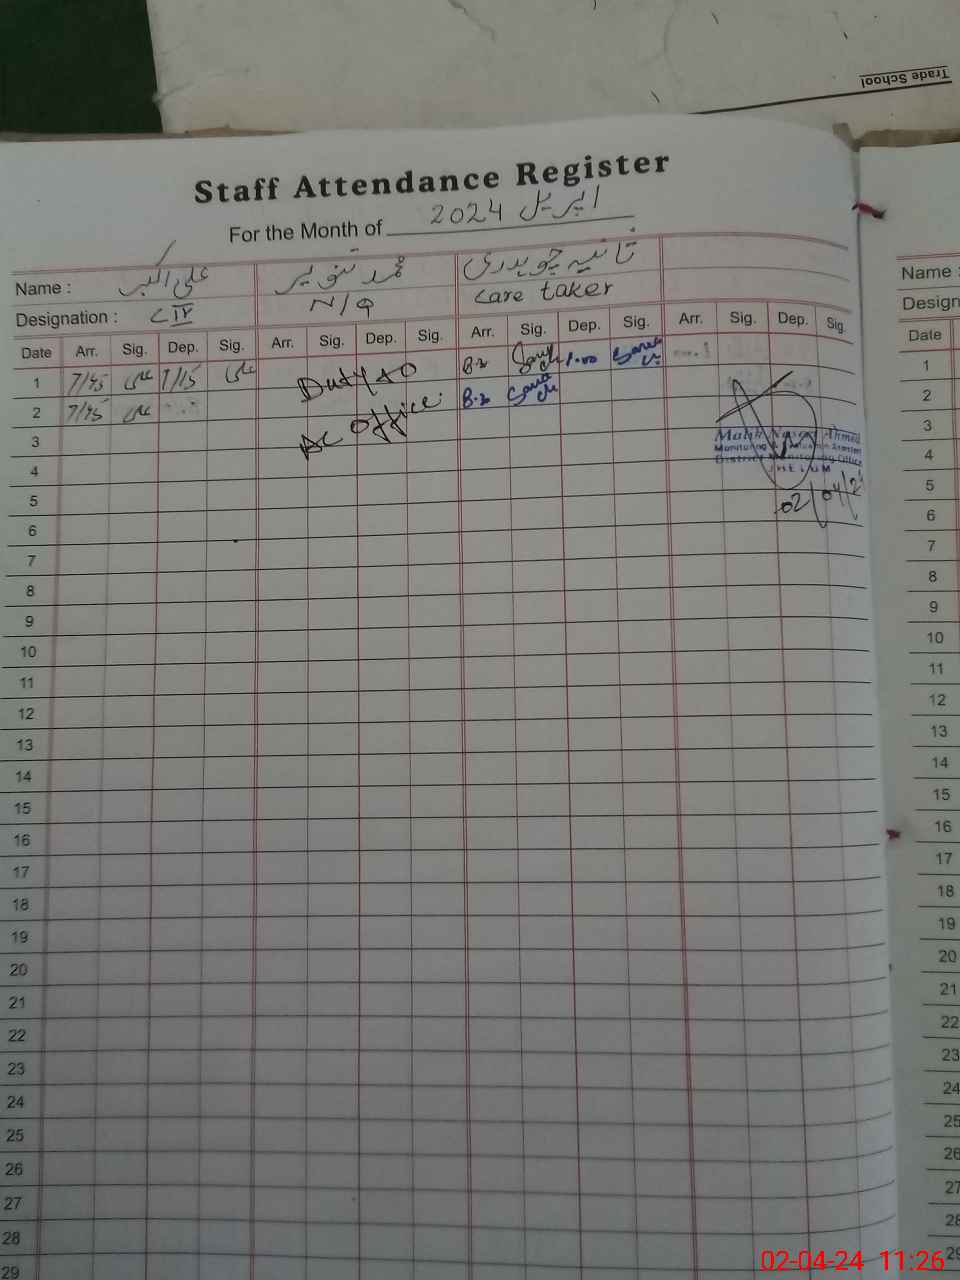 Trade School
Staff Attendance Register
For the Month of اپریل 2024
Name : علی اکبر محمد تنویر ثانیہ چوہدری
Designation : C IV N/Q care taker
Date Arr. Sig. Dep. Sig. Arr. Sig. Dep. Sig. Arr. Sig. Dep. Sig. Arr. Sig. Dep. Sig.
1 7/45 علی 1/15 علی Duty to 1.00
2 7/45 علی AC Office
3
4
5
6
7
8
9
10
11
12
13
14
15
16
17
18
19
20
21
22
23
24
25
26
27
28
29
Malik Naseer Ahmed
Monitoring & Evaluation Assistant
District Monitoring Office
JHELUM
02/04/2
Name :
Design
Date
1
2
3
4
5
6
7
8
9
10
11
12
13
14
15
16
17
18
19
20
21
22
23
24
25
26
27
28
29
02-04-24 11:26